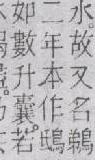 水。故又名鵜
二年本作
如數升囊。若